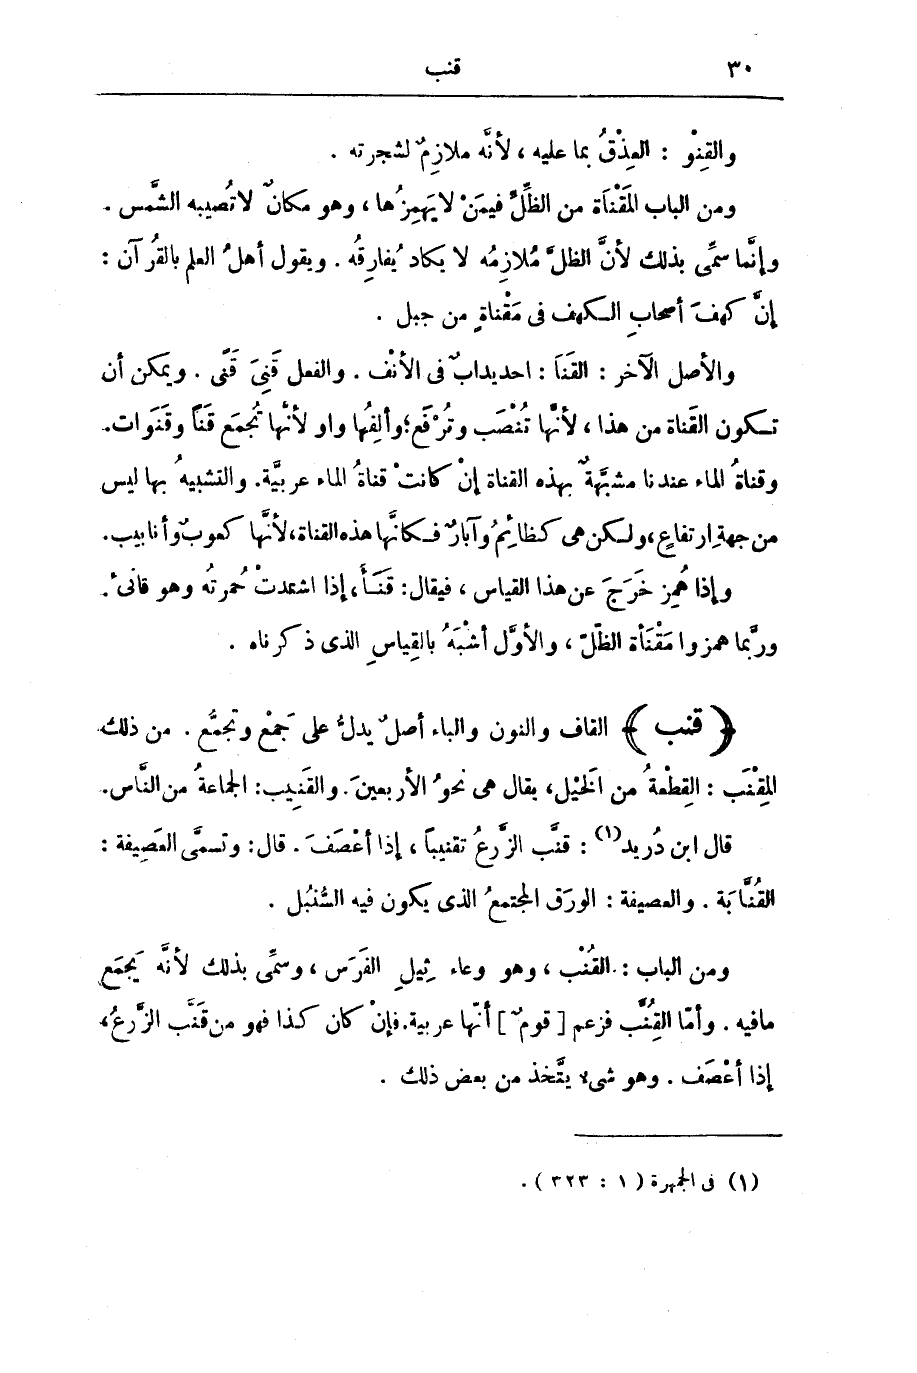 ٣٠ قنب
والقِنْو : العِذْقُ بما عليه ، لأنَّه ملازِمٌ لشجرته .
ومن الباب المَقْنَاة من الظِّلِّ فيمَنْ لا يَهمِزُها ، وهو مكانٌ لا تُصيبه الشَّمس .
وإنَّما سمِّى بذلك لأنَّ الظلَّ مُلازِمُه لا يكاد يُفارِقُه . ويقول أهلُ العلم بالقُرآن :
إنَّ كهفَ أصحابِ الكهف فى مَقْناةٍ من جبل .
والأصل الآخر : القَنَا : احديدابٌ فى الأنْف . والفعل قَنِىَ قَنًى . ويمكن أن
تكون القَناة من هذا ، لأنَّها تُنْصَب وتُرْفَع؛ وألِفُها واو لأنَّها تُجمَع قَناً وقَنَوات.
وقناةُ الماء عندنا مشبَّهةٌ بهذه القناة إنْ كانتْ قناةُ الماء عربيَّة. والتشبيهُ بها ليس
من جهةِ ارتفاعٍ، ولكن هى كظائِمُ وآبارٌ فكأنَّها هذه القناة، لأنَّها كعوبٌ وأنابيب.
وإذا هُمِز خَرَجَ عن هذا القياس ، فيقال: قَنَأَ، إذا اشتدتْ حُمرتُه وهو قانئٌ.
وربَّما همزوا مَقْنَأة الظّلّ ، والأوَّل أشْبَهُ بالقِياسِ الذى ذكرناه .
﴿ قنب ﴾ القاف والنون والباء أصلٌ يدلُّ على جَمْعٍ وتجمُّع . من ذلك
المِقْنَب : القِطْعةُ من الَخيْل، يقال هى نحوُ الأربعينَ. والقَنِيب: الجماعةُ من النَّاس.
قال ابن دُريد(١) : قنَّب الزَّرعُ تقنيباً ، إذا أعْصَفَ . قال: وتسمَّى العَصِيفة :
القُنَّابَة . والعصيفة : الورَق المجتمعُ الذى يكون فيه السُّنبُل .
ومن الباب : القُنْب ، وهو وعاء ثِيلِ الفَرَس ، وسمِّى بذلك لأنَّه يَجمَع
مافيه . وأمّا القِنَّب فزعم [ قومٌ ] أنّها عربية. فإنْ كان كذا فهو من قَنَّب الزَّرعُ،
إذا أعْصَف . وهو شىء يتَّخذ من بعض ذلك .
(١) فى الجمهرة ( ١ : ٣٢٣ ) .